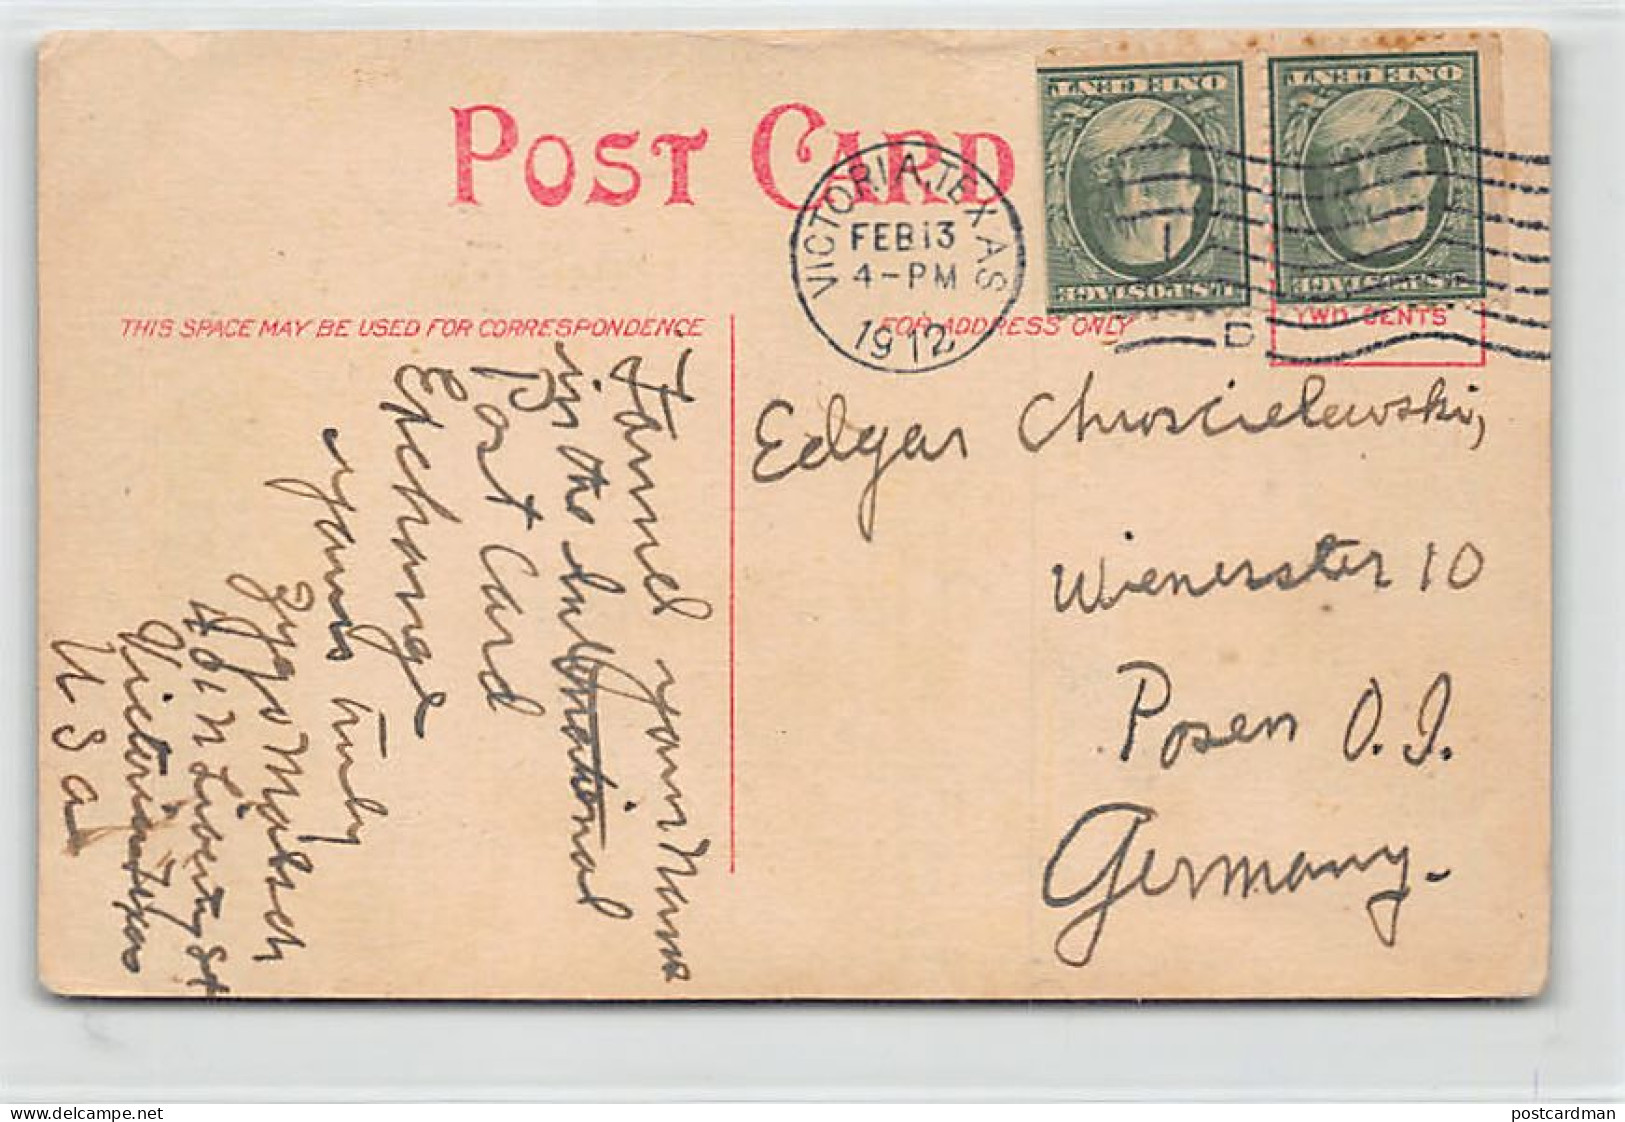 POST CARD
ONE CENT
ONE CENT
U.S. POSTAGE
U.S. POSTAGE
VICTORIA, TEXAS
FEB 13
4-PM
1912
D
TWO CENTS
THIS SPACE MAY BE USED FOR CORRESPONDENCE
FOR ADDRESS ONLY
Edgar Chroscielewski,
Wienerster 10
Posen O. I.
Germany.
your Name
in the International
Post Card
Exchange
yours truly
401 N Liberty St
Victoria Texas
U S a
Delcampe.net
postcardman